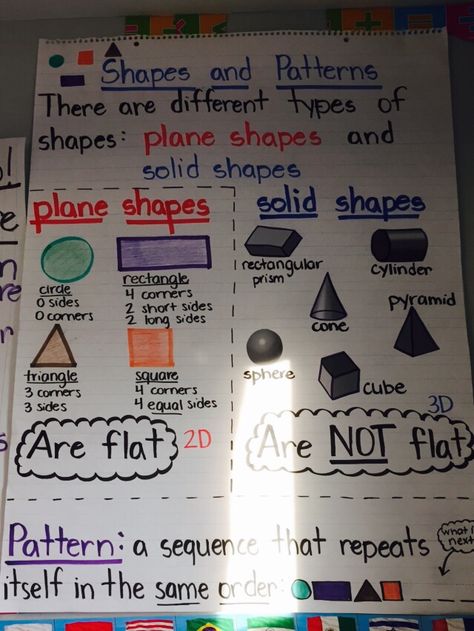 Shapes and Patterns
There are different types of
shapes: plane shapes and
solid shapes
plane shapes
circle
0 sides
0 corners
rectangle
4 corners
2 short sides
2 long sides
triangle
3 corners
3 sides
square
4 corners
4 equal sides
Are flat
2D
solid shapes
rectangular
prism
cylinder
cone
pyramid
sphere
cube
3D
Are NOT flat
Pattern: a sequence that repeats
itself in the same order:
next